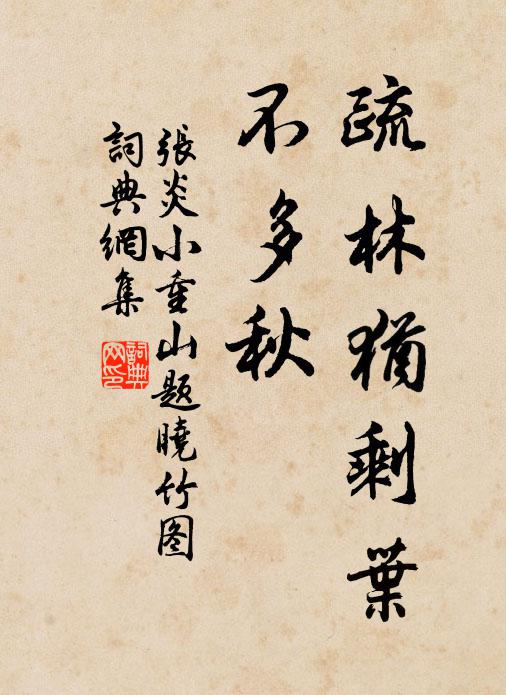 疏林猶剩葉
不多秋
張炎小重山題曉竹图
詞典網集
詞典
网印